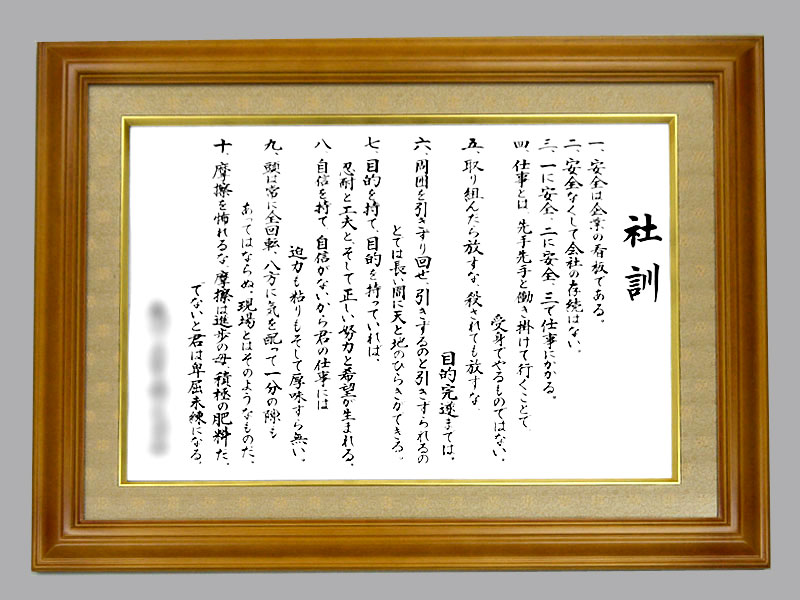 社訓
一、安全は企業の看板である。
二、安全なくして会社の存続はない。
三、一に安全、二に安全、三で仕事にかかる。
四、仕事とは、先手先手と働き掛けて行くことで、
受身でやるものではない。
五、取り組んだら放すな、殺されても放すな、
目的完遂までは。
六、周囲を引きずり回せ、引きずるのと引きずられるの
とでは長い間に天と地のひらきができる。
七、目的を持て、目的を持っていれば、
忍耐と工夫と、そして正しい努力と希望が生まれる。
八、自信を持て、自信がないから君の仕事には
迫力も粘りもそして厚味すら無い。
九、頭は常に全回転、八方に気を配って一分の隙も
あってはならぬ。現場とはそのようなものだ。
十、摩擦を怖れるな、摩擦は進歩の母、積極の肥料だ、
でないと君は卑屈未練になる。